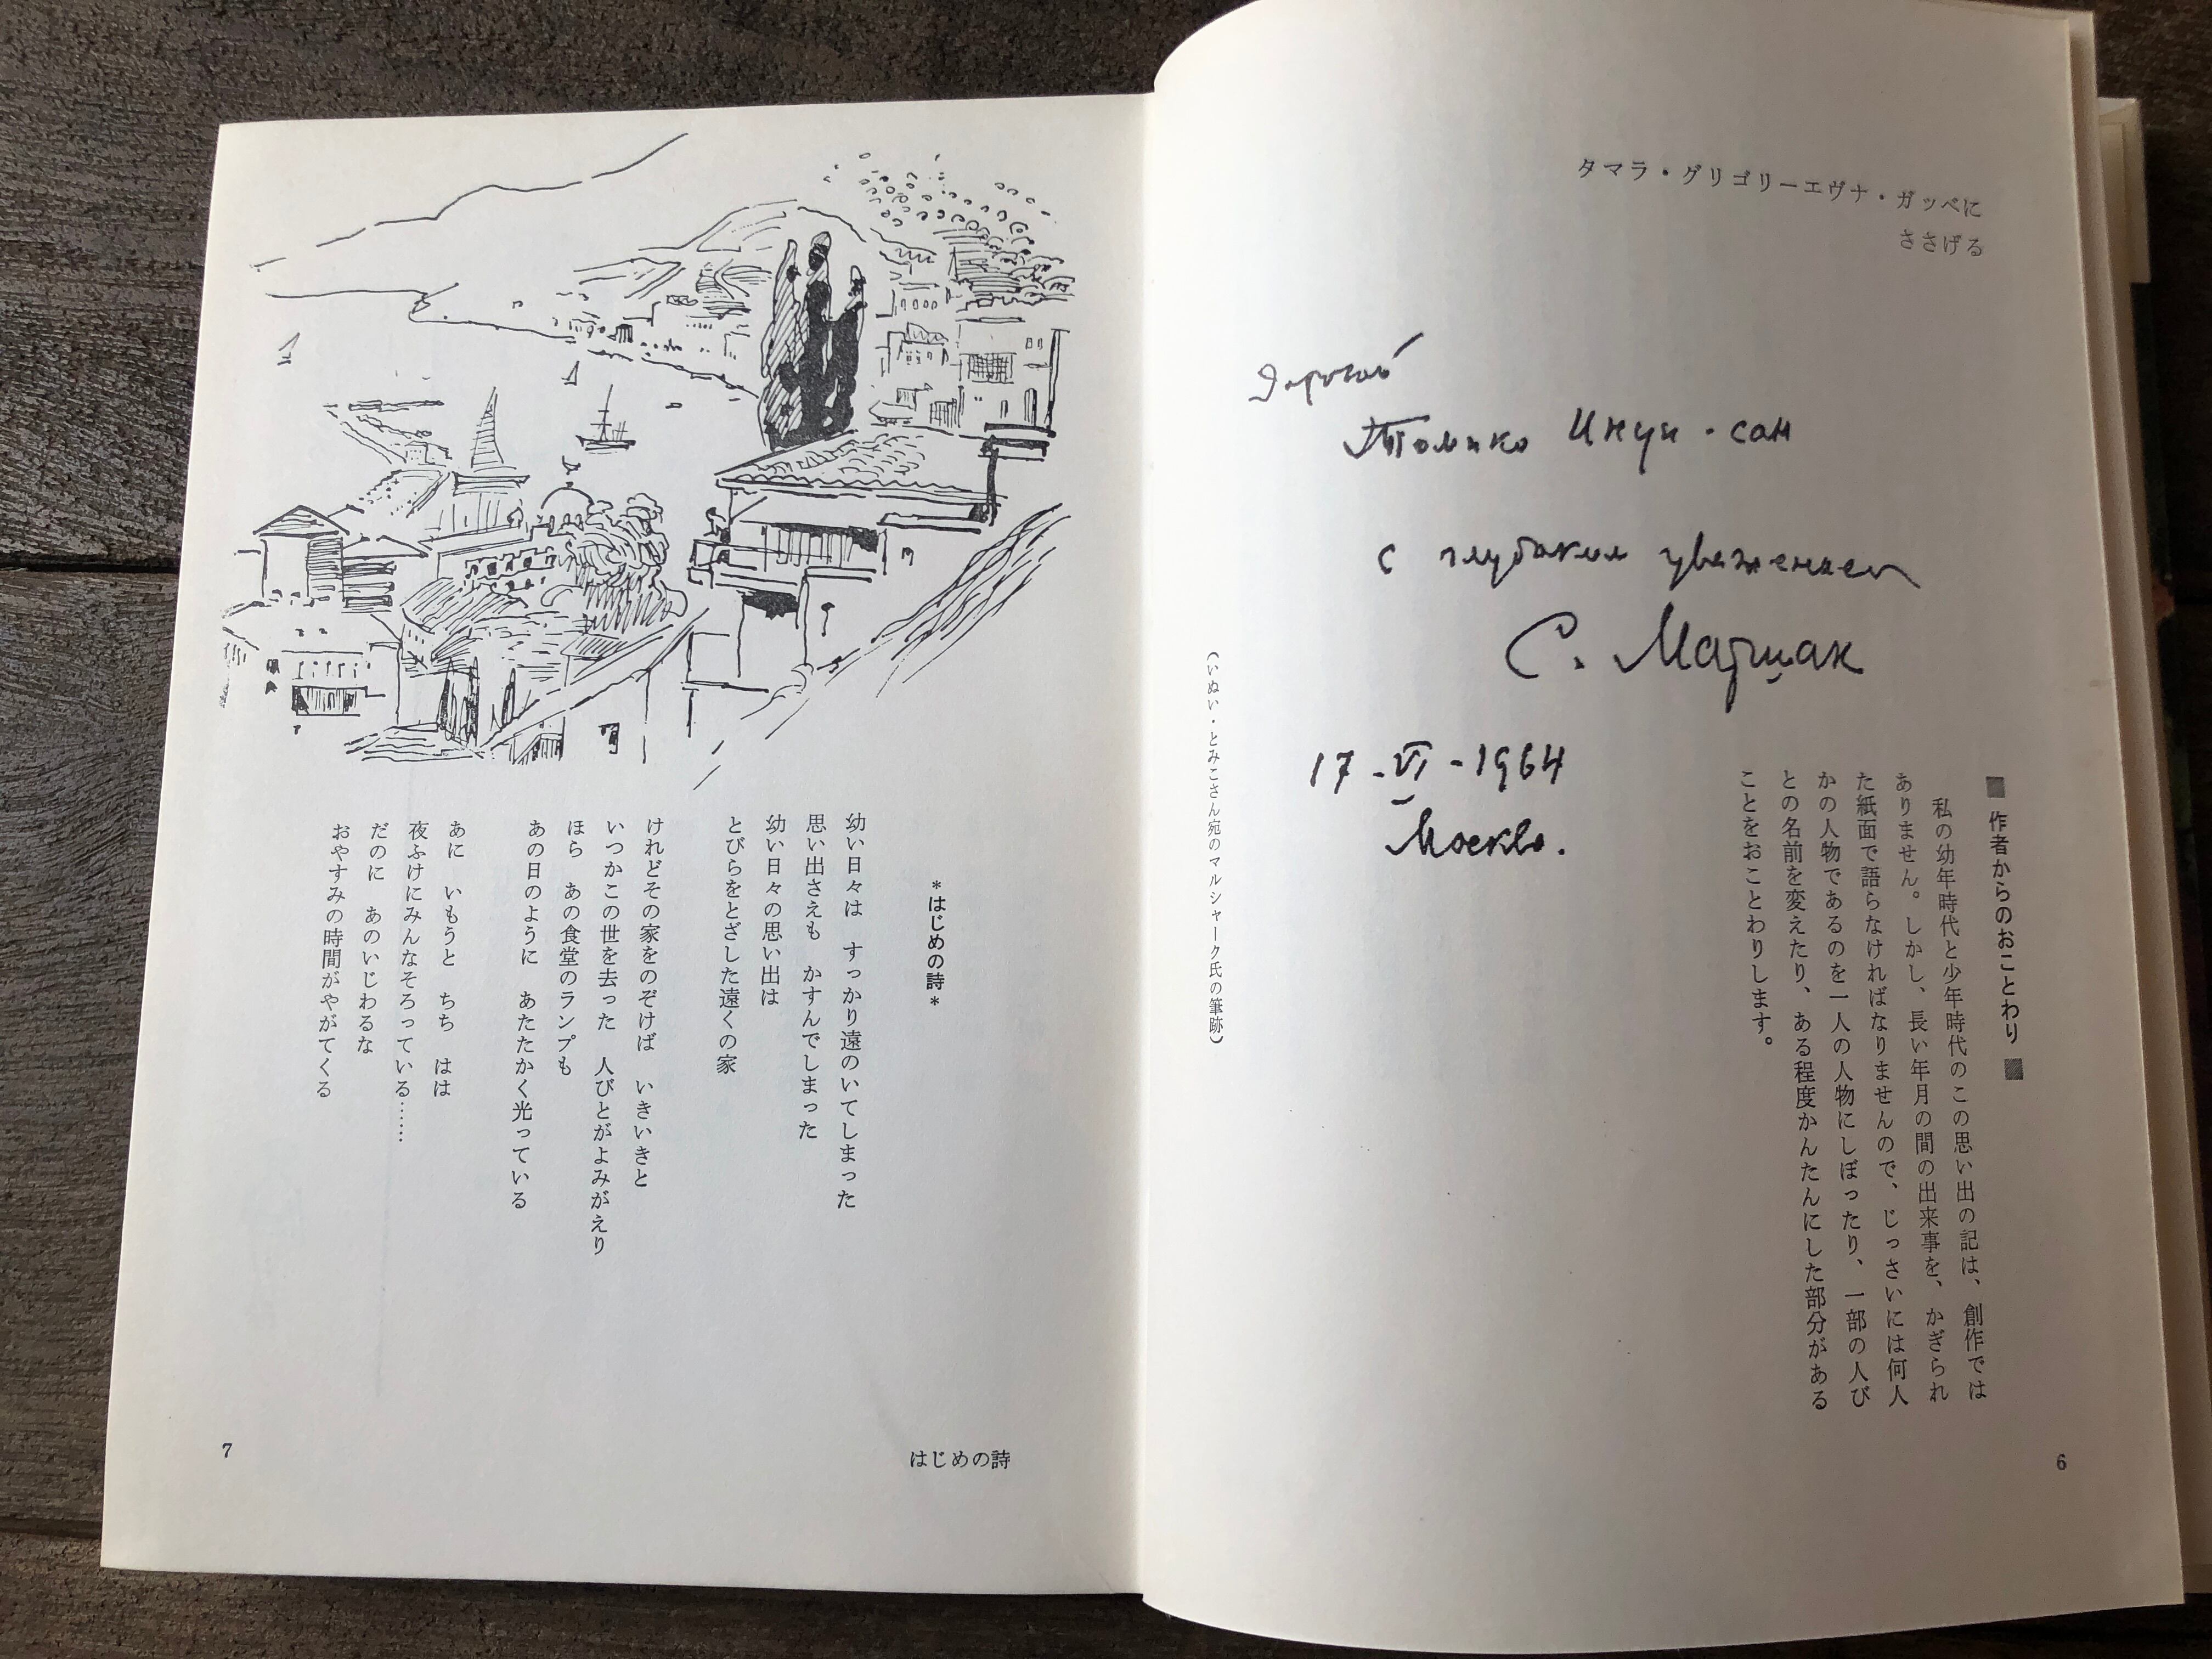 タマラ・グリゴリーエヴナ・ガッベに
ささげる
Дорогой
Томико Инуи-сан
с глубоким уважением
С. Маршак
17-VI-1964
Москва.
（いぬい・とみこさん宛のマルシャーク氏の筆跡）
■ 作者からのおことわり ■
私の幼年時代と少年時代のこの思い出の記は、創作では
ありません。しかし、長い年月の間の出来事を、かぎられ
た紙面で語らなければなりませんので、じっさいには何人
かの人物であるのを一人の人物にしぼったり、一部の人び
との名前を変えたり、ある程度かんたんにした部分がある
ことをおことわりします。
6
*はじめの詩*
幼い日々は　すっかり遠のいてしまった
思い出さえも　かすんでしまった
幼い日々の思い出は
とびらをとざした遠くの家
けれどその家をのぞけば　いきいきと
いつかこの世を去った　人びとがよみがえり
ほら　あの食堂のランプも
あの日のように　あたたかく光っている
あに　いもうと　ちち　はは
夜ふけにみんなそろっている……
だのに　あのいじわるな
おやすみの時間がやがてくる
はじめの詩
7